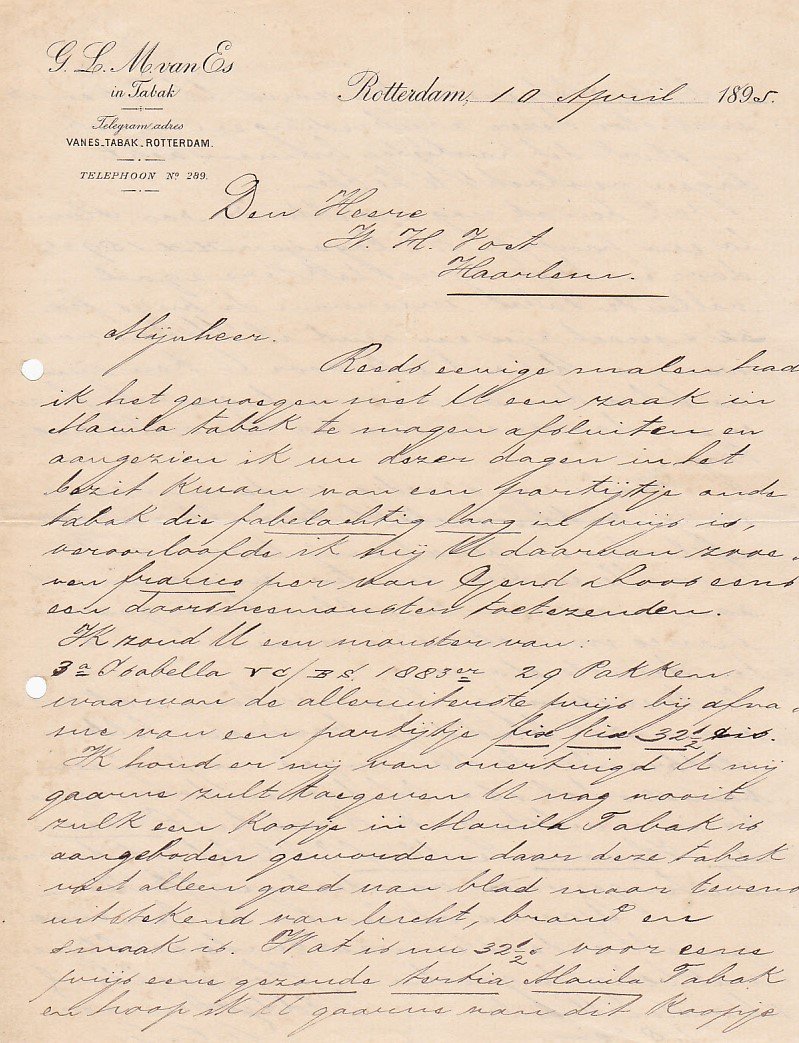 G. L. M. van Es
in Tabak
Telegram adres
VANES-TABAK-ROTTERDAM.
TELEPHOON No 289.
Rotterdam, 10 April 1895.
Den Heere
W. H. Vost
Haarlem.
Mijnheer.
Reeds eenige malen had
ik het genoegen met U een zaak in
Manila tabak te mogen afsluiten en
aangezien ik nu dezer dagen in het
bezit kwam van een partijtje oude
tabak die fabelachtig laag in prijs is,
veroorloofde ik mij U daarvan zooe-
ven franco per van Gend & Loos eens
een doorsneemonster toetezenden.
Ik zond U een monster van:
3a Isabella 1883er 29 Pakken
waarvan de alleruiterste prijs bij afna-
me van een partijtje fix fix 32½ cts.
Ik houd er mij van overtuigd U mij
gaarne zult toegeven U nog nooit
zulk een Koopje in Manila Tabak is
aangeboden geworden daar deze tabak
niet alleen goed van blad maar tevens
uitstekend van lucht, brand en
smaak is. Wat is nu 32½ c voor eene
prijs eene gezonde tertia Manila Tabak
en hoop ik U gaarne van dit Koopje